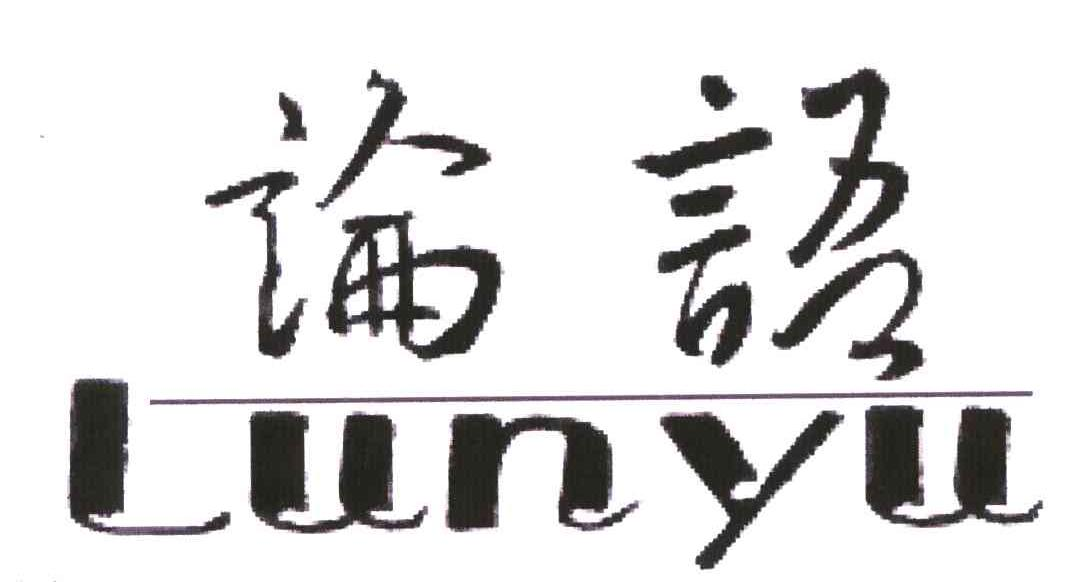 論語
Lunyu